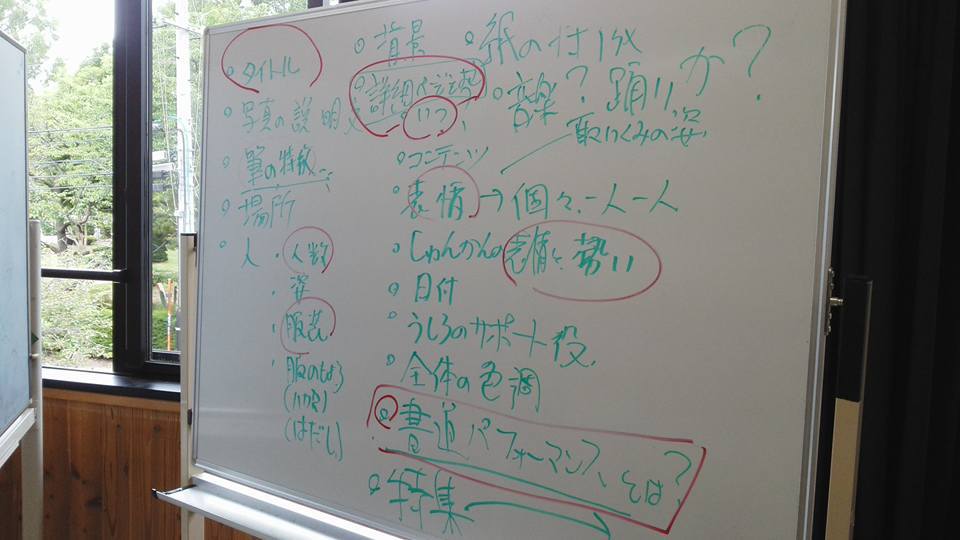 ○タイトル
○写真の説明文
○筆の特徴
○場所
○人・人数
・姿
・服装
・服のちょう
(ハカマ)
(はだし)
○背景
○詳細
○いつ
○コンテンツ
○表情→個々、一人一人
○しゅんかんの表情と勢い
○日付
○うしろのサポート役
○全体の色調
◎書道パフォーマンスとは?
○特集
○紙の寸法
○音楽?踊りか?
取りくみの姿